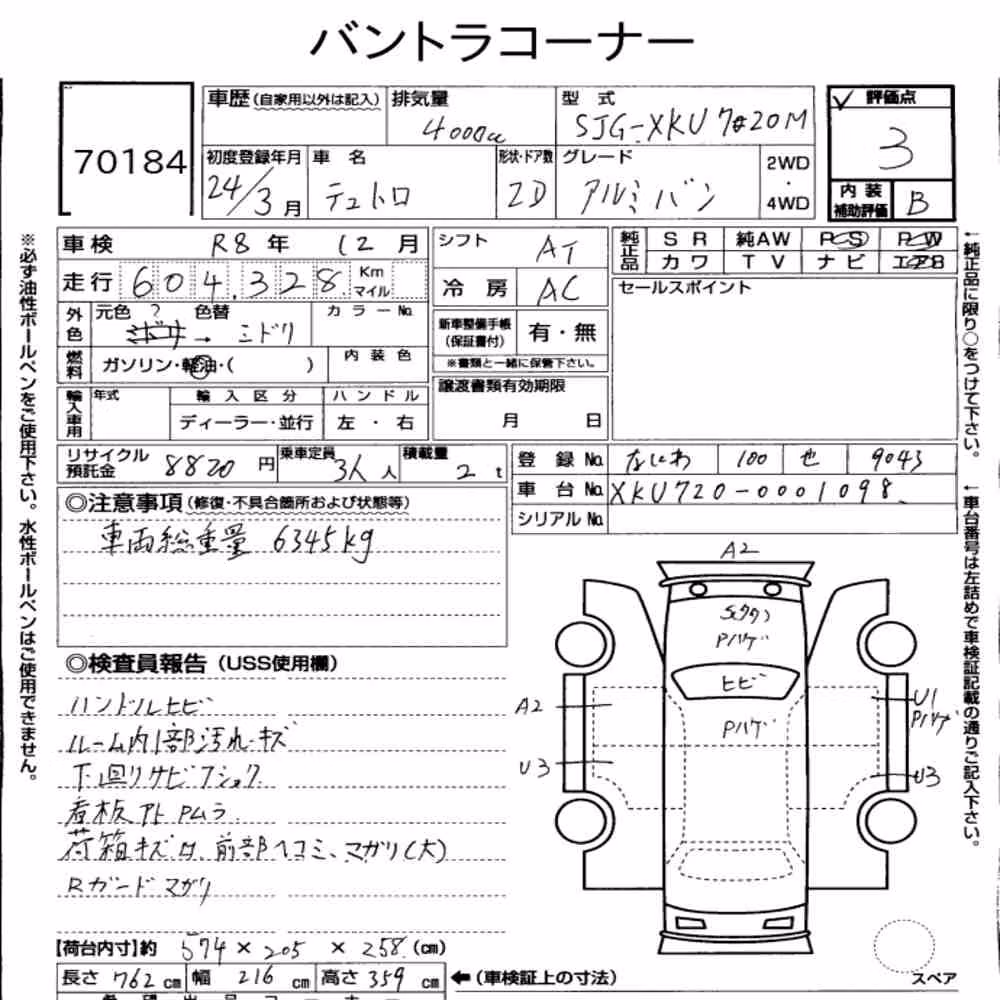 バントラコーナー
70184
車歴(自家用以外は記入) 排気量 4000cc 型式 SJG-XKU720M
✓ 評価点 3
初度登録年月 24/3月 車名 デュトロ 形状・ドア数 2D グレード アルミバン 2WD・4WD
内装補助評価 B
車検 R8年 12月 シフト AT
純正品 SR 純AW PS PW
カワ TV ナビ エアB
走行 604,328 Km マイル 冷房 AC
セールスポイント
外色 元色 ? 色替 → ミドリ カラーNo.
新車整備手帳(保証書付) 有・無
※書類と一緒に保管下さい。
燃料 ガソリン・軽油・( ) 内装色
譲渡書類有効期限 月 日
輸入車用 年式 輸入区分 ディーラー・並行 ハンドル 左・右
リサイクル預託金 8820円 乗車定員 3人人 積載量 2t
登録No. なにわ 100 せ 9043
車台No. XKU720-0001098
シリアルNo.
◎注意事項(修復・不具合箇所および状態等)
車両総重量 6345kg
◎検査員報告(USS使用欄)
ハンドルヒビ
ルーム内1部汚れ・キズ
下廻りサビフショク
看板アト Pムラ
荷箱キズロ、前部ヘコミ、マガリ(大)
Rガードマガリ
【荷台内寸】約 574×205×258(cm)
長さ 762cm 幅 216cm 高さ 359cm ←(車検証上の寸法)
A2
Pハゲ
ヒビ
Pハゲ
A2
U3
U1
Pハゲ
U3
スペア
※必ず油性ボールペンをご使用下さい。水性ボールペンはご使用できません。
←純正品に限り○をつけて下さい。
←車台番号は左詰めで車検証記載の通りご記入下さい。